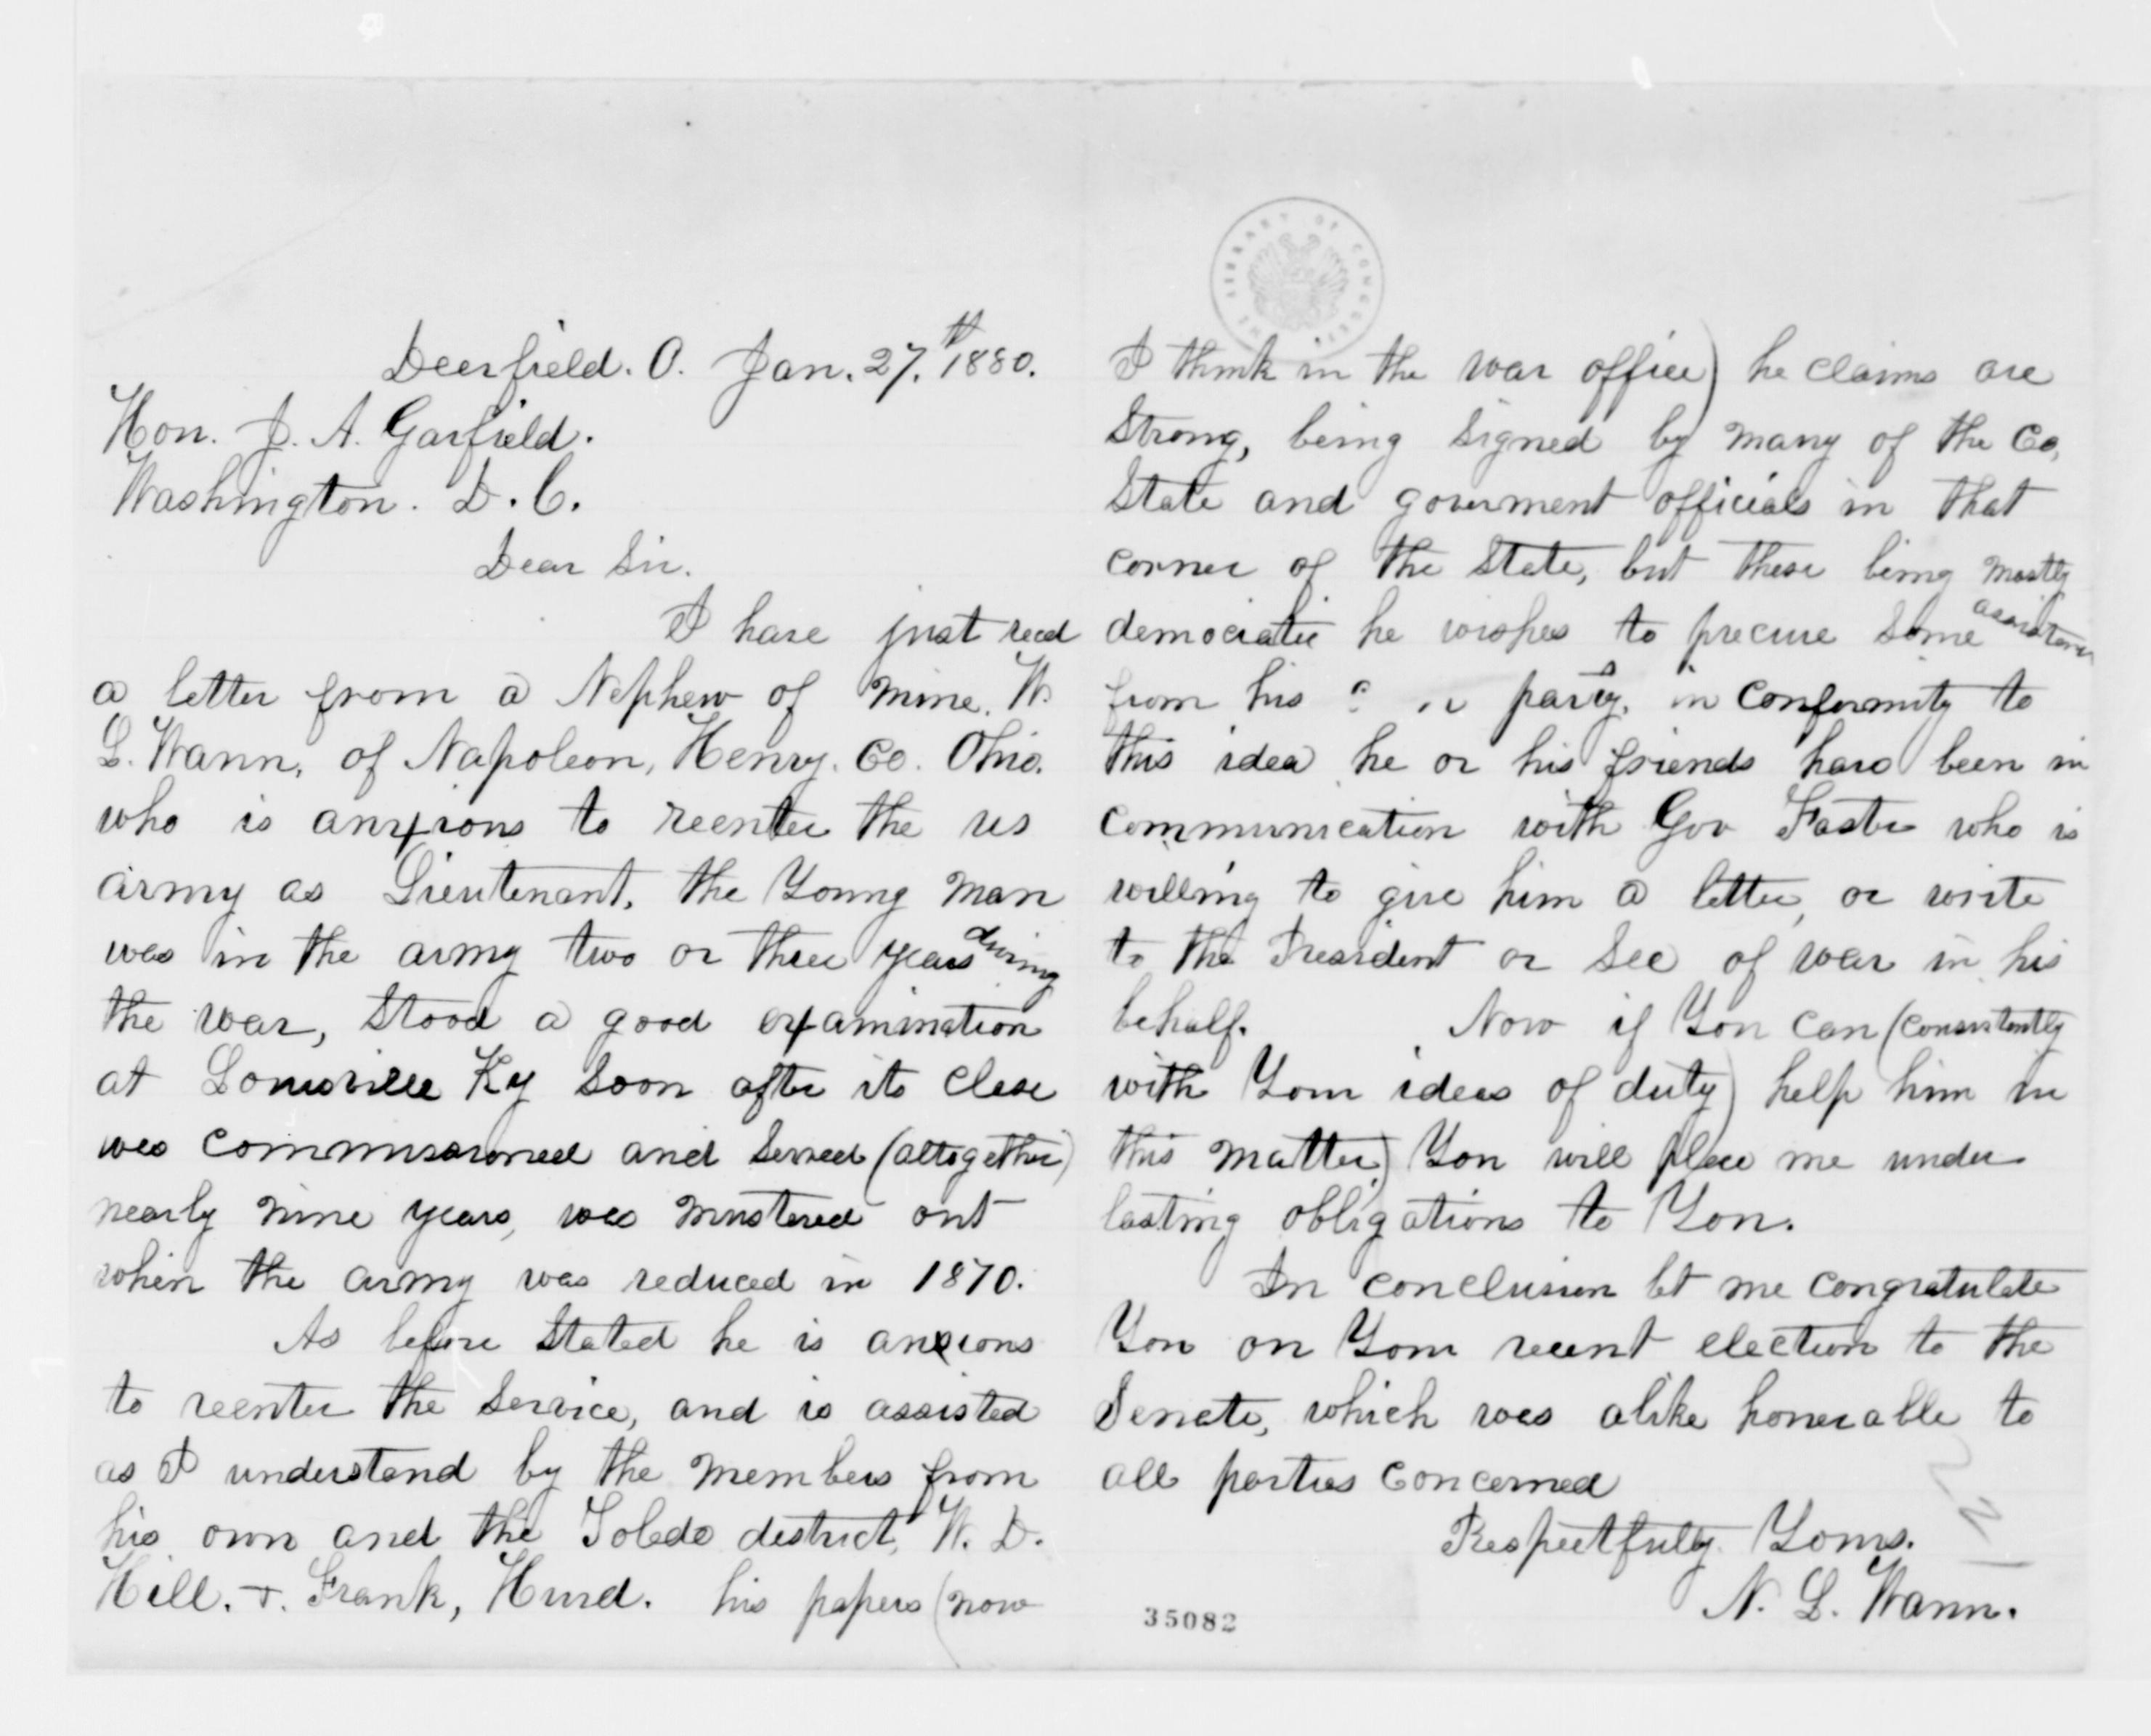 Deerfield. O. Jan. 27.th 1880.
Hon. J. A. Garfield.
Washington. D. C.
Dear Sir.
I have just recd
a letter from a Nephew of mine. W.
L. Wann, of Napoleon, Henry. Co. Ohio.
who is anxious to reenter the us
army as Lieutenant. the Young man
was in the army two or three years during
the war, stood a good examination
at Louisville Ky soon after its close
was commissioned and served (altogether)
nearly nine years, was mustered out
when the army was reduced in 1870.
As before stated he is anxious
to reenter the service, and is assisted
as I understand by the members from
his own and the Toledo district, W. D.
Hill. &. Frank, Hurd. his papers (now
THE LIBRARY OF CONGRESS
I think in the war office) he claims are
strong, being signed by many of the Co,
State and goverment officials in that
corner of the State, but these being mostly
democratic he wishes to precure some assistance
from his party. in conformity to
this idea he or his friends have been in
communication with Gov Foster who is
willing to give him a letter, or write
to the President or Sec of war in his
behalf. Now if You can (consistently
with Your ideas of duty) help him in
this matter) You will place me under
lasting obligations to You.
In conclusion let me congratulate
You on Your recent election to the
Senate, which was alike honerable to
all parties concerned
Respectfully Yours.
N. L. Wann.
35082